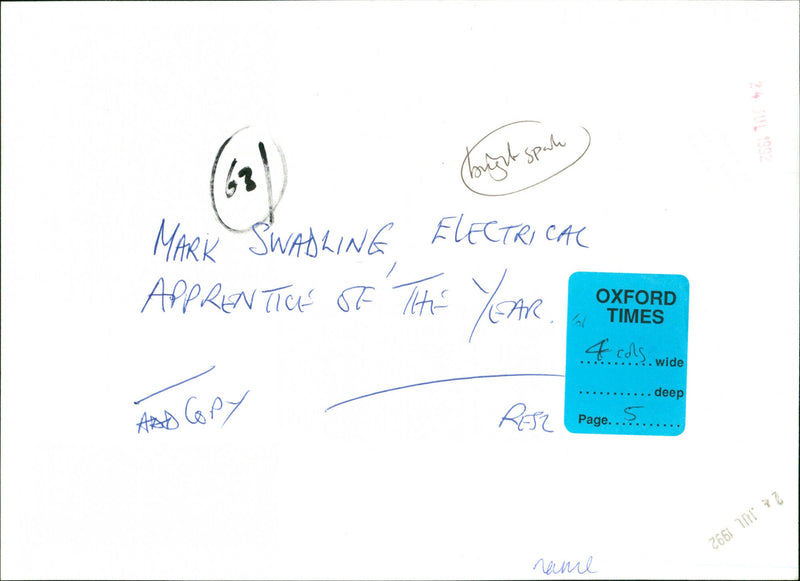 24 JUL 1992
bright spark
63
MARK SWADLING, ELECTRICAL
APPRENTICE OF THE YEAR.
OXFORD
TIMES
4 cols wide
deep
Page 5
ADD COPY
24 JUL 1992
name